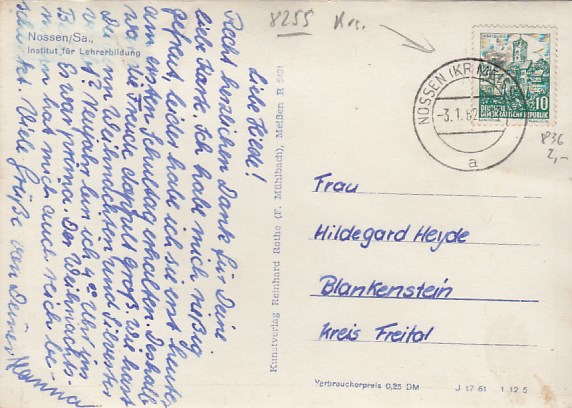 Nossen/Sa.,
Institut für Lehrerbildung
Liebe Heide!
Recht herzlichen Dank für Deine
liebe Karte. Ich habe mich riesig
gefreut, leider habe ich sie erst heute
am ersten Schultag erhalten. Deshalb
war die Freude doppelt groß. Wie hast
Du denn Weihnachten und Silvester
Es war prima. Der Weihnachts-
mann hat mich auch reich be-
schenkt. Viele Grüße von Deiner
Hanna
Kunstverlag Reinhard Rothe (F. Mühlbach), Meißen R
8255 Krs.
NOSSEN (KR. MEI
-3.1.62
a
10
DEUTSCHE DEMOKRATISCHE REPUBLIK
836
2,-
Frau
Hildegard Heyde
Blankenstein
Kreis Freital
Verbraucherpreis 0,25 DM
J 17 61 1 12 5